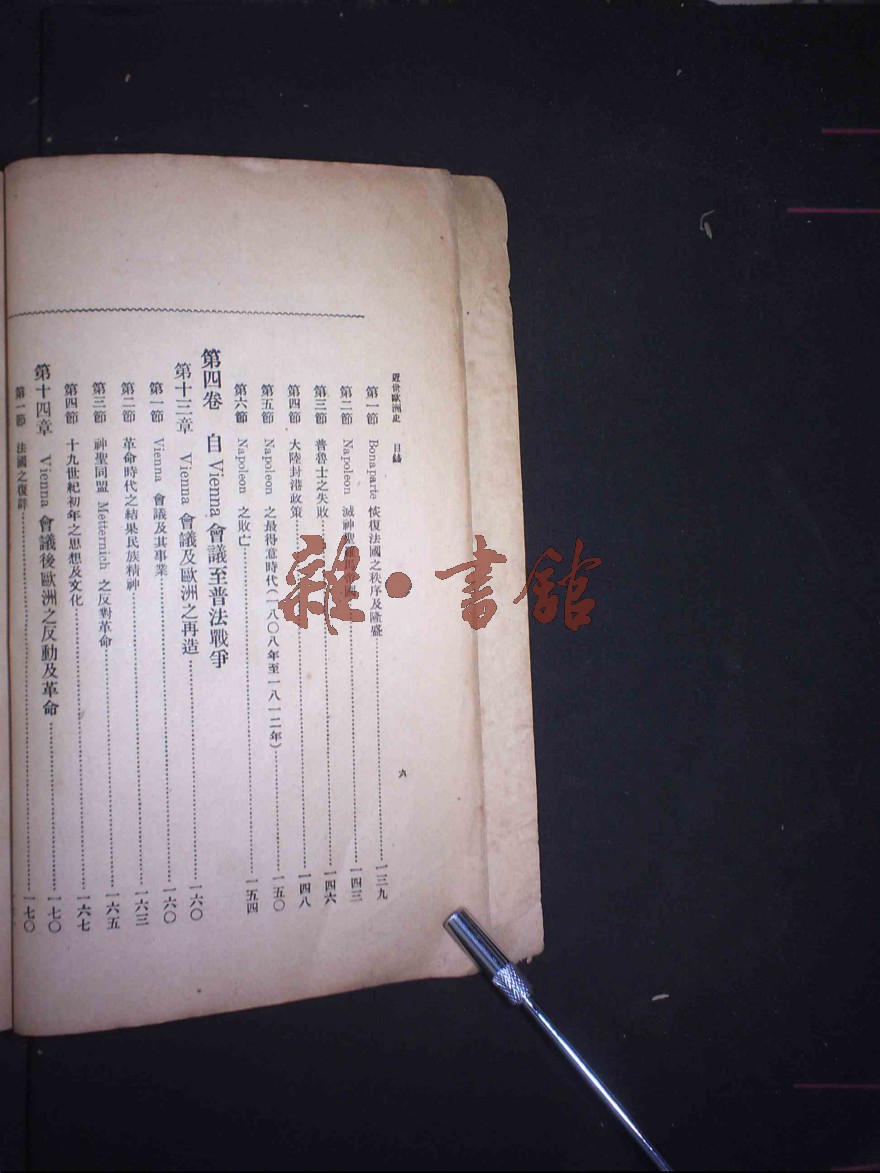 近世歐洲史 目錄
六
第一節 Bonaparte 恢復法國之秩序及隆盛 一三九
第二節 Napoleon 滅神聖羅馬帝國 一四三
第三節 普魯士之失敗 一四六
第四節 大陸封港政策 一四八
第五節 Napoleon 之最得意時代(一八〇八年至一八一二年) 一五〇
第六節 Napoleon 之敗亡 一五四
第四卷 自 Vienna 會議至普法戰爭
第十三章 Vienna 會議及歐洲之再造 一六〇
第一節 Vienna 會議及其事業 一六〇
第二節 革命時代之結果民族精神 一六三
第三節 神聖同盟 Metternich 之反對革命 一六五
第四節 十九世紀初年之思想及文化 一六七
第十四章 Vienna 會議後歐洲之反動及革命 一七〇
第一節 法國之復辟 一七〇
雜·書館